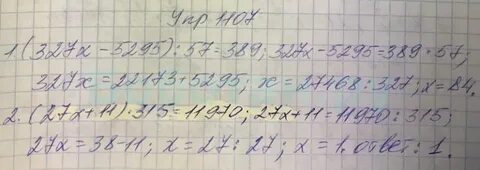 Упр 1107
1. (327x - 5295) : 57 = 389; 327x - 5295 = 389 * 57;
327x = 22173 + 5295; x = 27468 : 327; x = 84.
2. (27x + 11) · 315 = 11970; 27x + 11 = 11970 : 315;
27x = 38 - 11; x = 27 : 27; x = 1. ответ: 1.